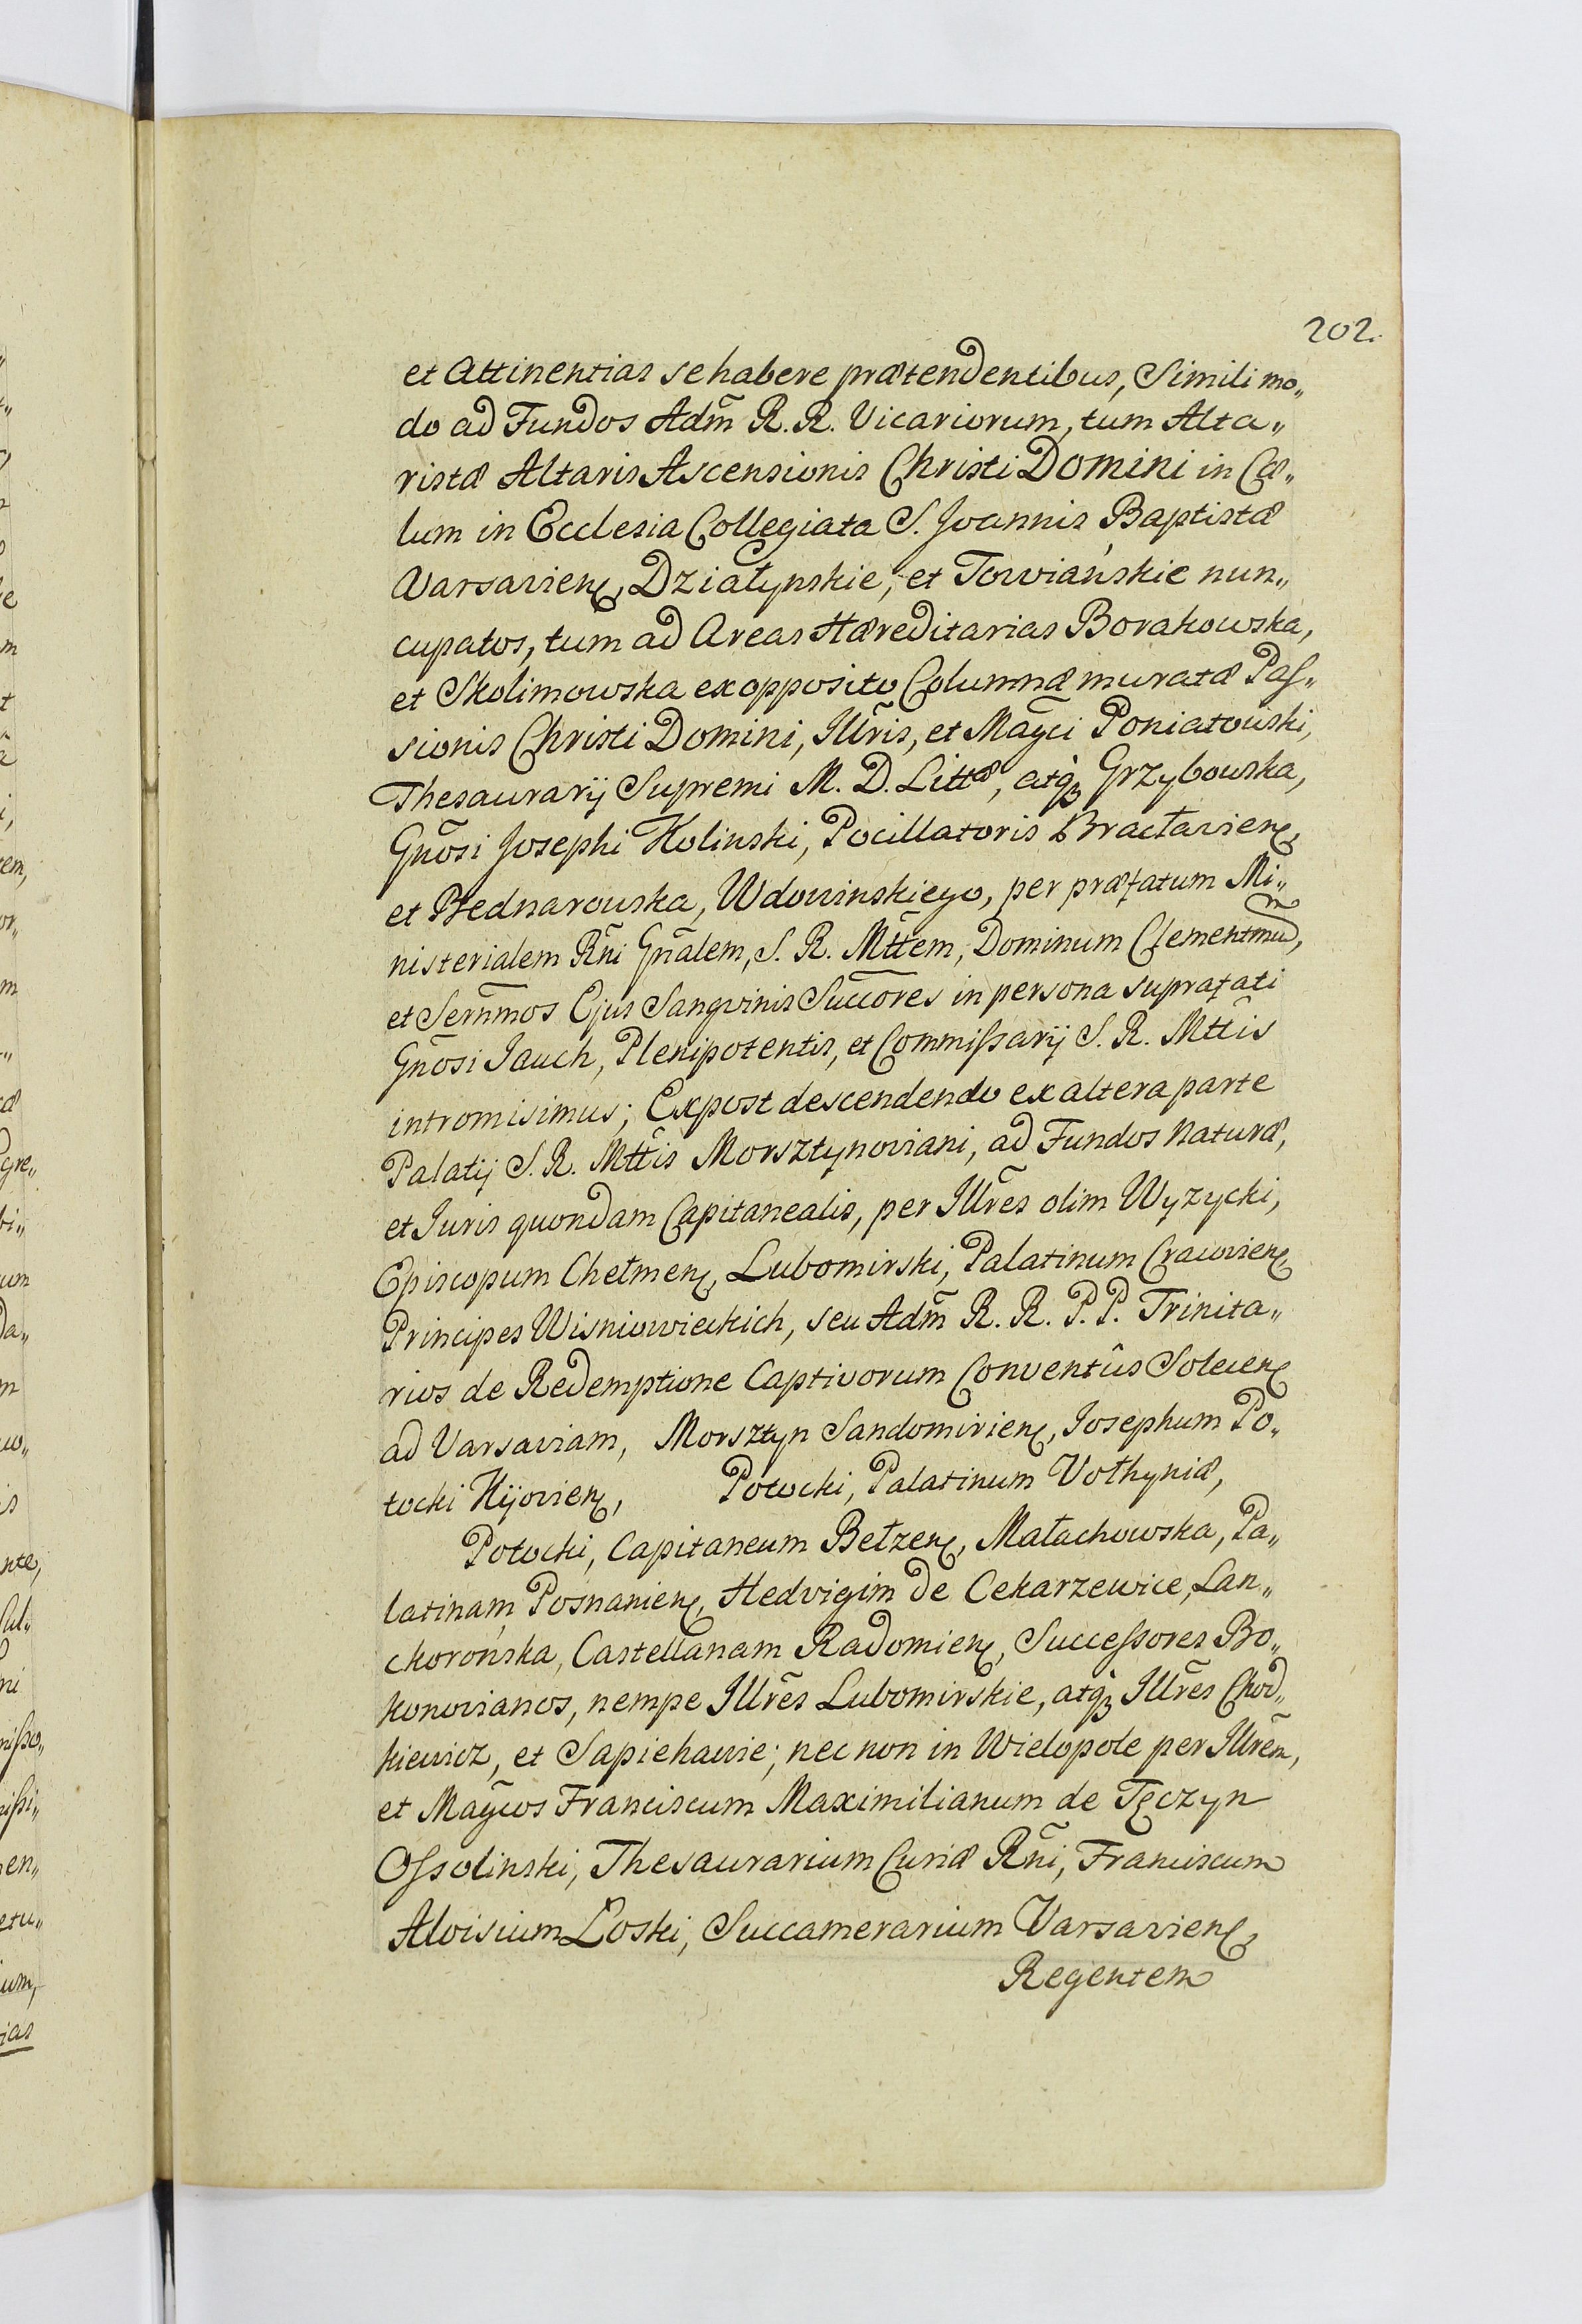 202.
et Attinentias se habere prætendentibus, Simili mo„
do ad Fundos Adm̃ R. R. Vicariorum, tum Alta„
ristæ Altaris Ascensionis Christi Domini in Cæ„
lum in Ecclesia Collegiata S. Joannis Baptistæ
Varsavien, Działynskie, et Towiańskie nun„
cupatos, tum ad Areas Hæreditarias Borakowska,
et Skolimowska ex opposito Columnæ muratæ Pas„
sionis Christi Domini, Illr̃is, et Mag̃ci Poniatowski,
Thesaurarij Supremi M. D. Littæ, atq́ꝫ Grzybowska,
Gñosi Josephi Kolinski, Pocillatoris Bracłavien,
et Bednarowska, Wdowinskiego, per præfatum Mi„
nisterialem Rñi Gñalem, S. R. Mttẽm, Dominum Clementm̃um,
et Serñmos Ejus Sangvinis Succ̃ores in persona suprafati
Gñosi Jauch, Plenipotentis, et Commissarij S. R. Mtt̃is
intromisimus; Expost descendendo ex altera parte
Palatij S. R. Mtt̃is Morsztynoviani, ad Fundos naturæ,
et Juris quondam Capitanealis, per Illr̃es olim Wyzycki,
Episcopum Chełmen, Lubomirski, Palatinum Cracovien,
Principes Wisniowieckich, seu Adm̃ R. R. P. P. Trinita„
rios de Redemptione Captivorum Conventûs Solecen
ad Varsaviam, Morsztyn Sandomirien, Josephum Po„
tocki Kijovien, Potocki, Palatinum Vołhyniæ,
Potocki, Capitaneum Bełzen, Małachowska, Pa„
latinam Posnanien, Hedvigim de Cekarzewice, Lan„
ckorońska, Castellanam Radomien, Successores Bo„
konovianos, nempe Illr̃es Lubomirskie, atq́ꝫ Illr̃es Chod„
kiewicz, et Sapiehawie; nec non in Wielopole per Illr̃em,
et Mag̃cos Franciscum Maximilianum de Tęczyn
Ossolinski, Thesaurarium Curiæ Rñi, Franciscum
Aloisium Łoski, Succamerarium Varsavien,
Regentem